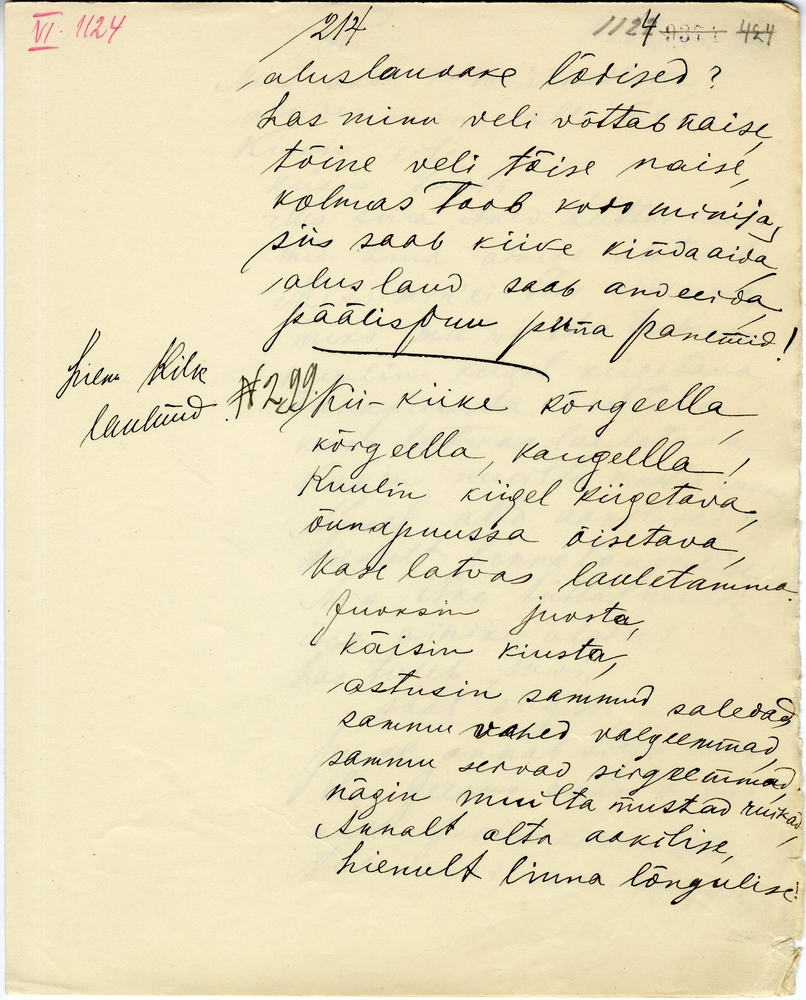 VI. 1124
214
1124 424
aluslauvake lõdised?
Las minu veli võttab naise,
tõine veli tõise naise,
kolmas toob kodo minija,
siis saab kiike kindaaida,
alus laud saab andeeida,
päälispuu puna panemid!
Kilk
laulnud. № 299.
Kii-kiike kõrgeella,
kõrgeella, kaugeella!
Kuulin kiigel kiigetava,
õunapuussa õisetava,
Kase latvas lauletamma.
Juoksin juosta,
käisin kiusta,
astusin sammud saledad,
sammu vahed valgeemmad,
sammu servad sirgeemmad.
nägin muilta mustad ruikad,
Annalt alta aakilise,
hienult linna lõngulise!